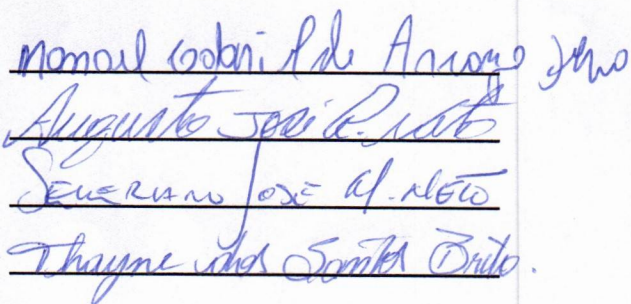 Manoel Gabriel de
Augusto José
Severiano José M. Neto
Thayne dos Santos Brito.